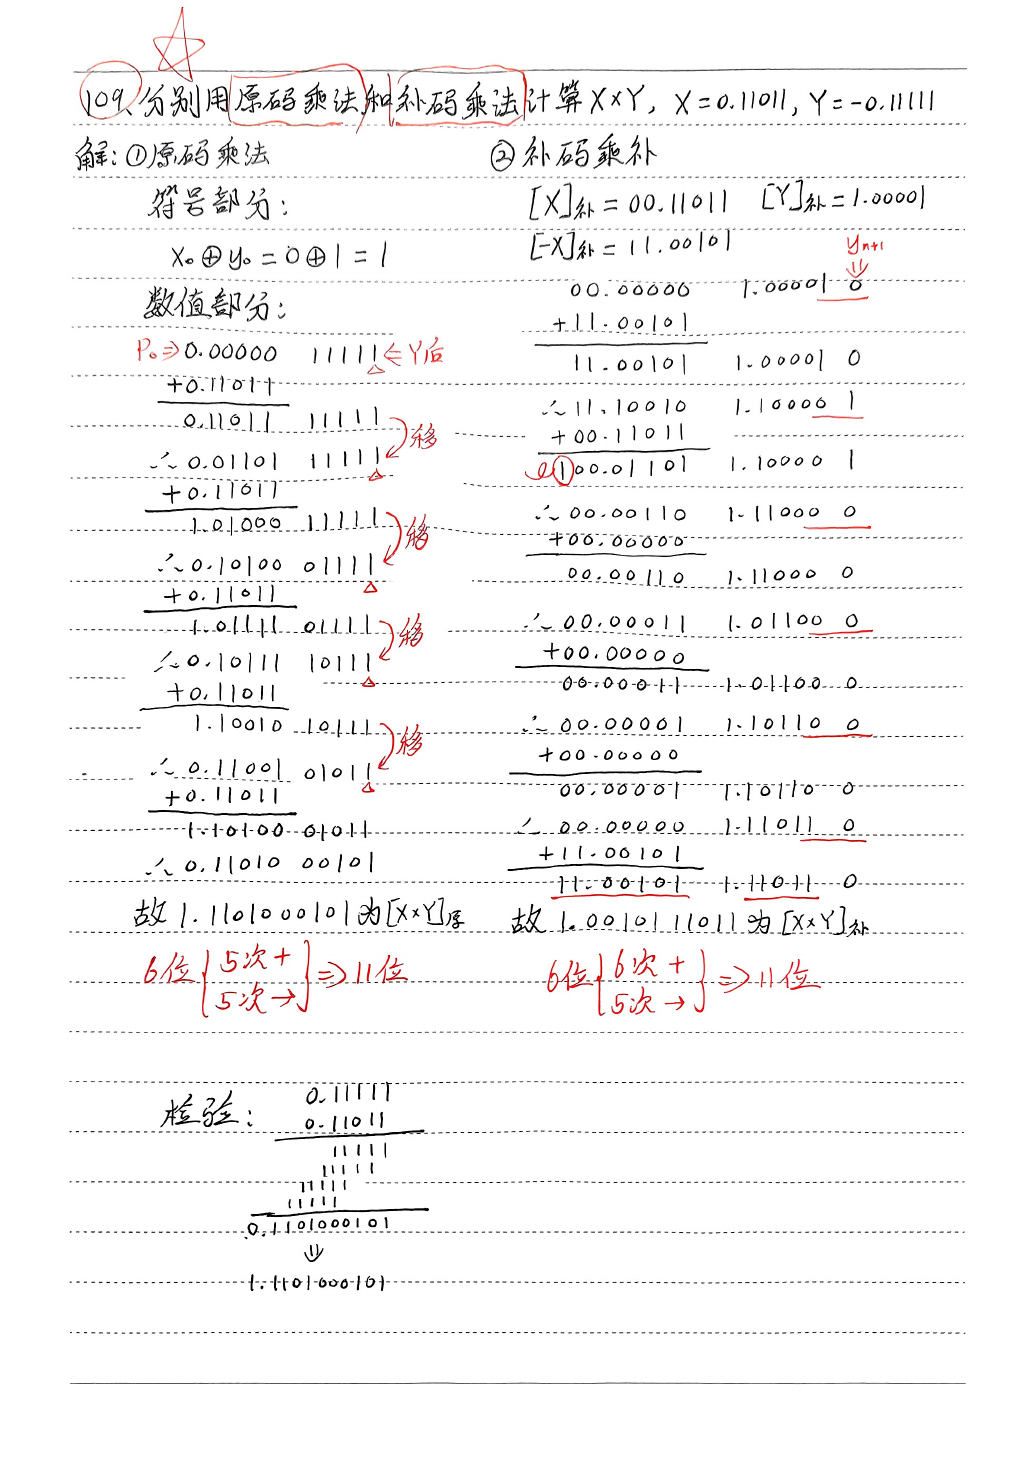 109、分别用原码乘法和补码乘法计算X×Y, X=0.11011, Y=-0.11111
解:①原码乘法
符号部分:
x₀⊕y₀=0⊕1=1
数值部分:
P₀⇒0.00000 11111⇐Y后
+0.11011
0.11011 11111
移
∴0.01101 11111
+0.11011
1.01000 11111
移
∴0.10100 01111
+0.11011
1.01111 01111
移
∴0.10111 10111
+0.11011
1.10010 10111
移
∴0.11001 01011
+0.11011
1.10100 01011
∴0.11010 00101
故1.1101000101为[X×Y]原
6位{5次+ 5次→}⇒11位
②补码乘补
[X]补=00.11011 [Y]补=1.00001
[-X]补=11.00101
yn+1
⇓
00.00000 1.00001 0
+11.00101
11.00101 1.00001 0
∴11.10010 1.10000 1
+00.11011
100.01101 1.10000 1
∴00.00110 1.11000 0
+00.00000
00.00110 1.11000 0
∴00.00011 1.01100 0
+00.00000
00.00011 1.01100 0
∴00.00001 1.10110 0
+00.00000
00.00001 1.10110 0
∴00.00000 1.11011 0
+11.00101
11.00101 1.11011 0
故1.0010111011为[X×Y]补
6位{6次+ 5次→}⇒11位
检验:
0.11111
0.11011
11111
11111
11111
11111
0.1101000101
⇓
1.1101000101